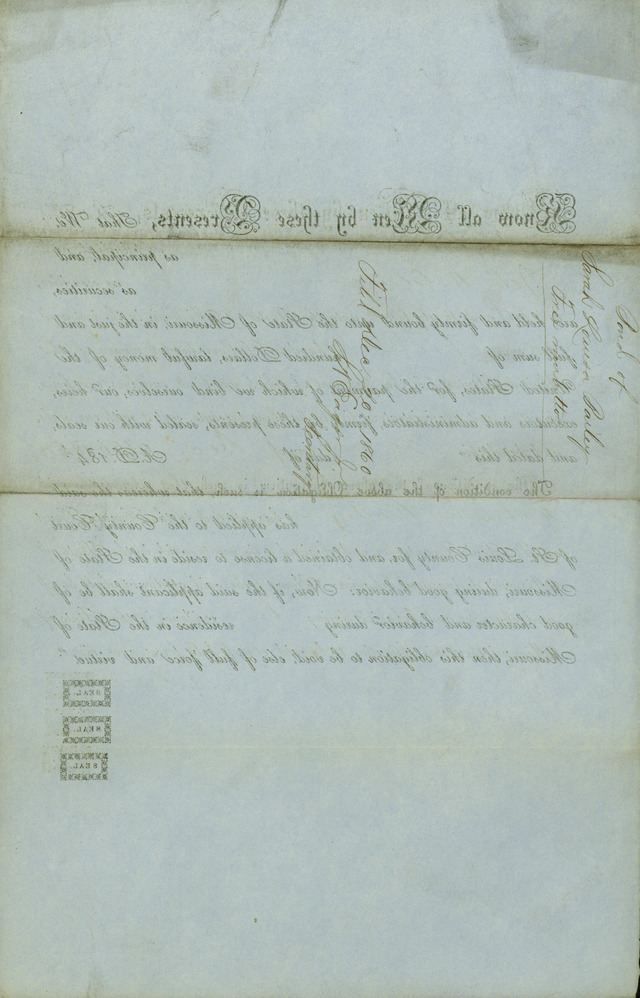 Know all Men by these Presents, That We
as principal, and
as securities,
are held and firmly bound unto the State of Missouri, in the just and
full sum of Hundred Dollars, lawful money of the
United States, for the payment of which we bind ourselves, our heirs,
executors and administrators, firmly by these presents, sealed with our seals,
and dated this day of A. D. 184
The condition of the above Obligation is such, that whereas the said
has applied to the County Court
of St. Louis County for, and obtained a license to reside in the State of
Missouri, during good behavior: Now, if the said applicant shall be of
good character and behavior during residence in the State of
Missouri, then this obligation to be void, else of full force and virtue.
SEAL.
SEAL.
SEAL.
Bond of
Sarah
Free
Fil'd Dec 1860